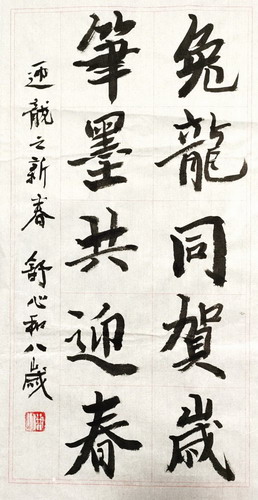 兔龍同賀歲
筆墨共迎春
迎龍之新春 舒心和八歲